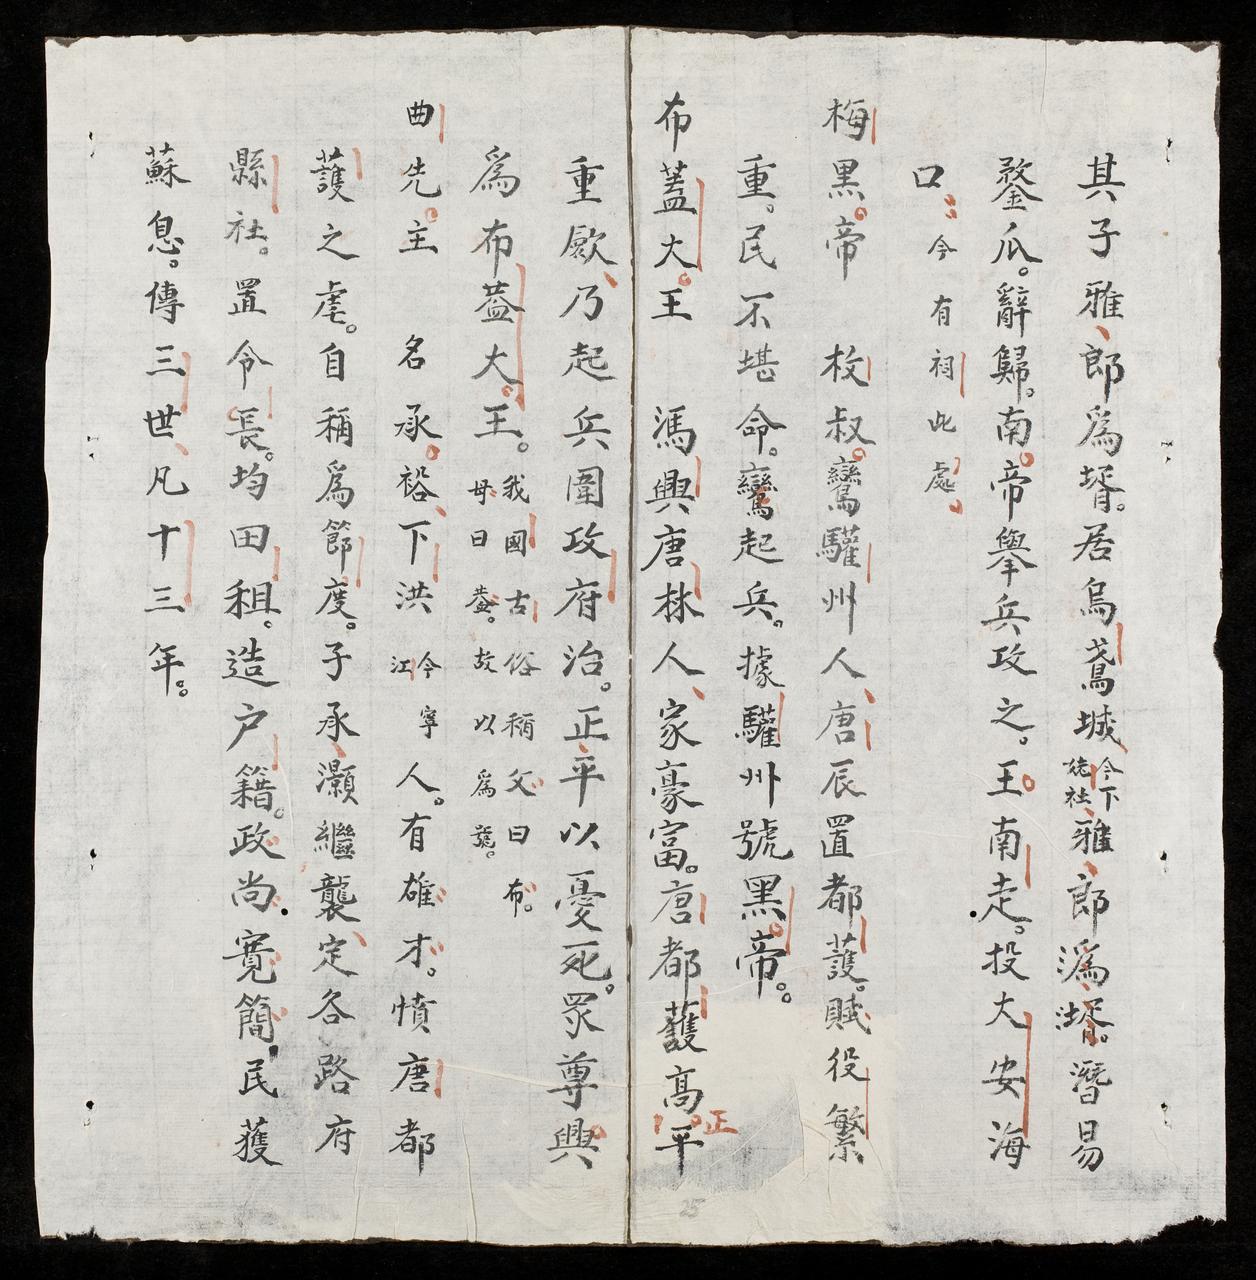 其子雅郎爲壻。居烏鳶城今下姥社雅郎潙壻。潛易
鍪瓜。辭歸。南帝舉兵攻之。王南走。投大安海
口今有祠此處
梅黑帝 枚叔鸞驩州人唐辰置都護。賦役繁
重。民不堪命。鸞起兵。據驩州號黑帝。
布蓋大王 馮興唐林人家豪富。唐都護高平
正
重歛乃起兵圍攻府治。正平以憂死。眾尊興
爲布蓋大王。我國古俗稱父曰布。母曰蓋。故以爲號。
曲先主 名承裕下洪今寧江人。有雄才。憤唐都
護之虐。自稱爲節度。子承灝繼襲定各路府
縣社。置令長。均田租。造户籍。政尚寬簡民獲
蘇息。傳三世凡十三年。
25